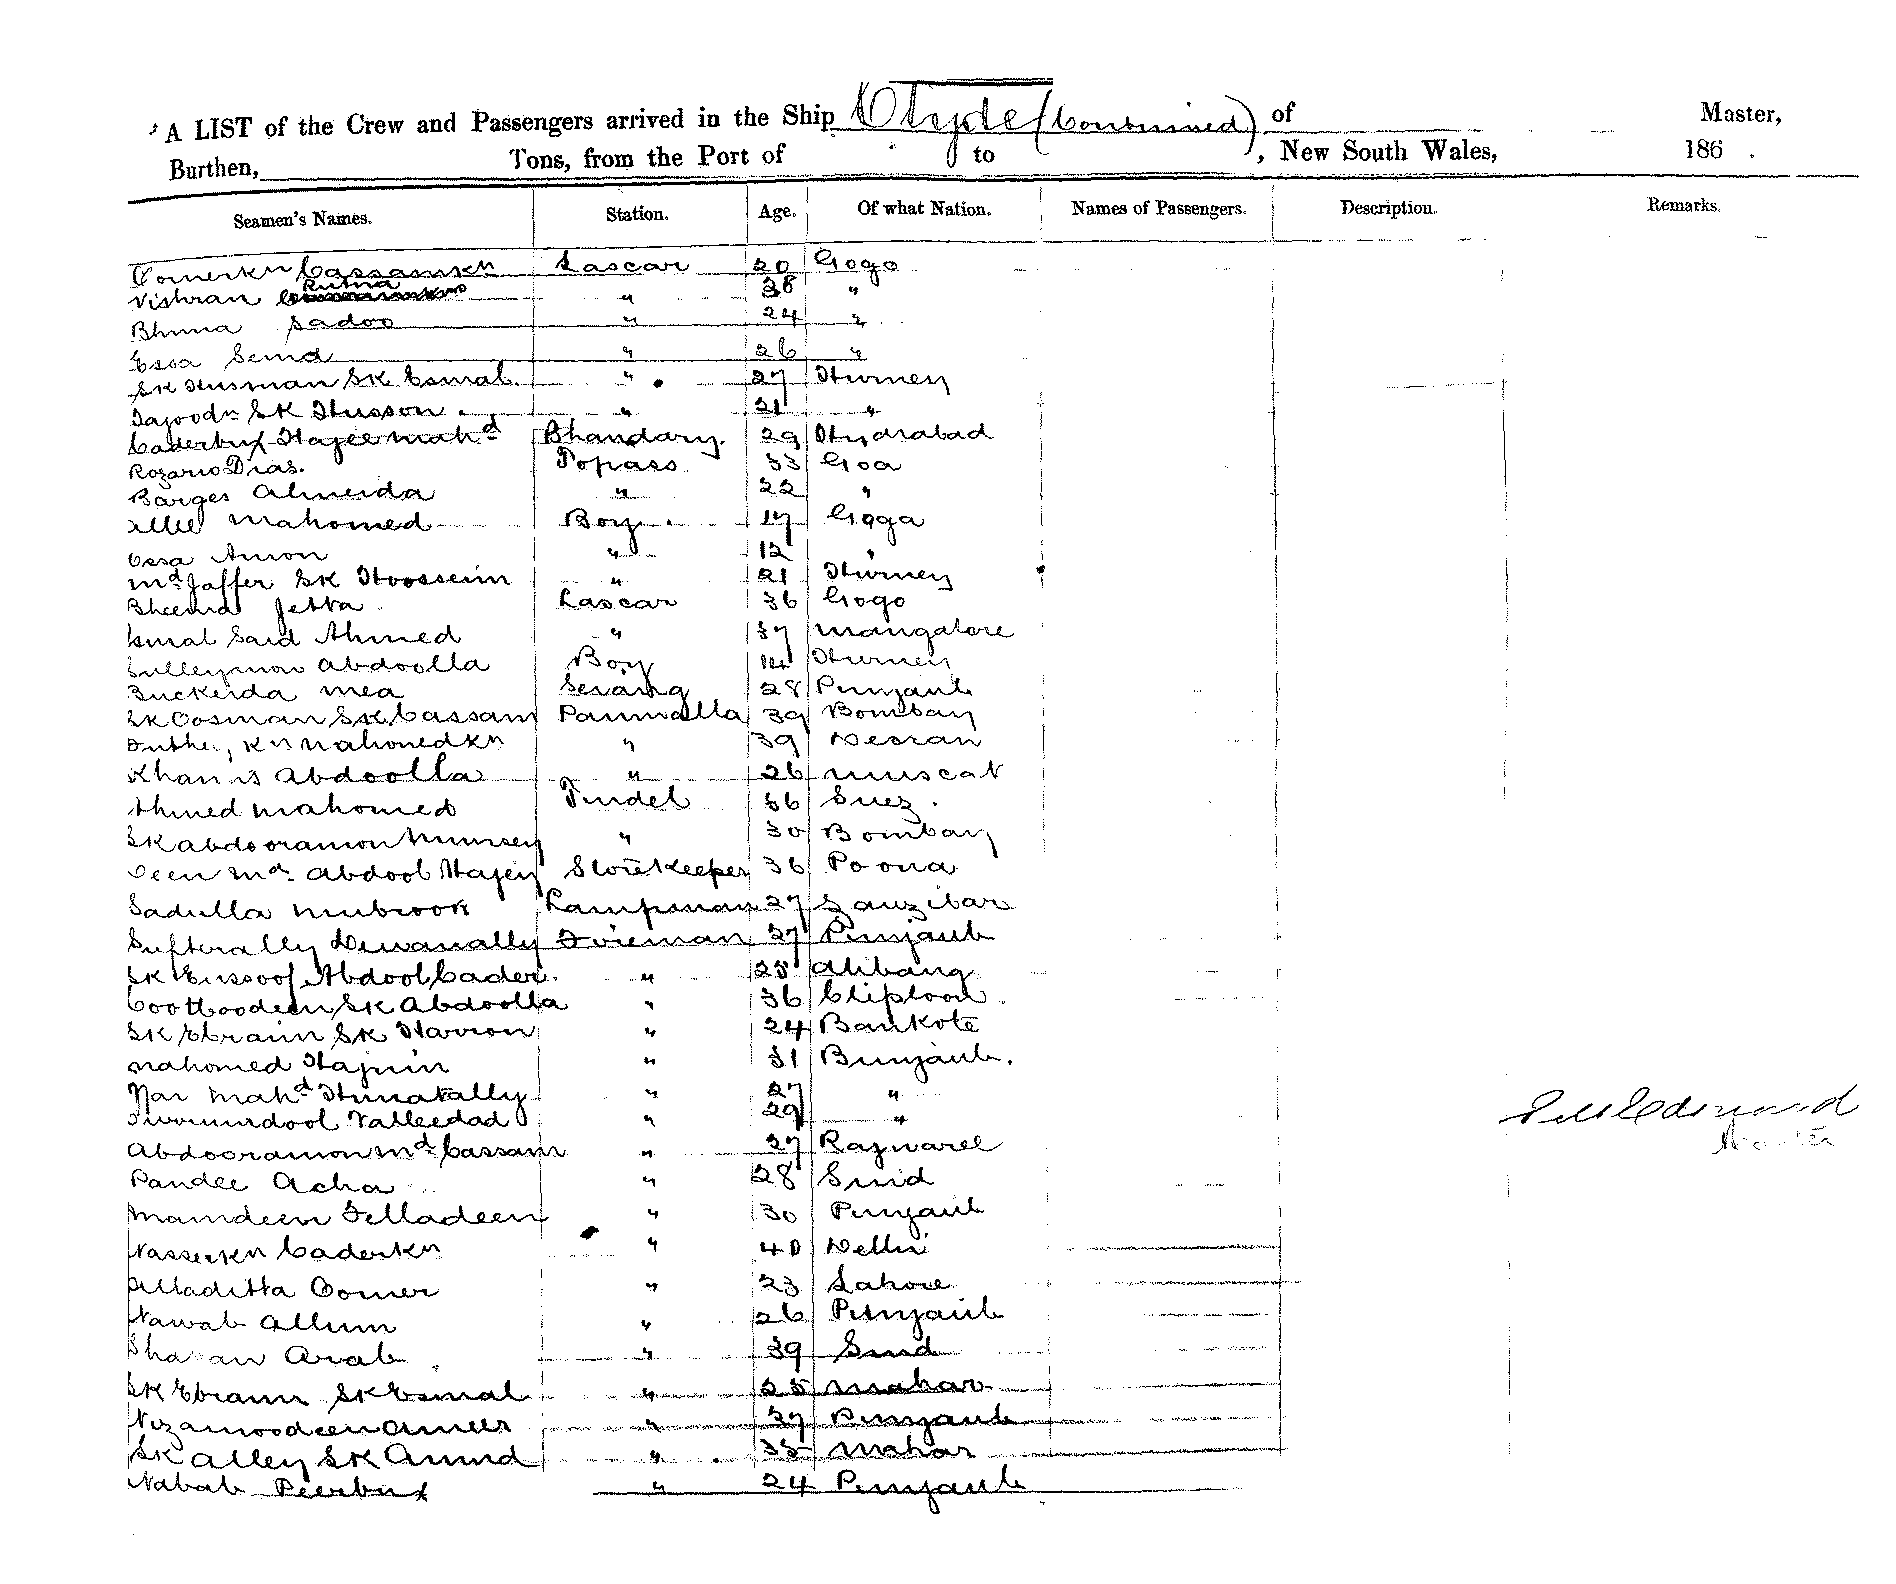 A LIST of the Crew and Passengers arrived in the Ship Clyde (Continued) of Master,
Burthen, Tons, from the Port of to , New South Wales, 186 .
Seamen's Names. Station. Age. Of what Nation. Names of Passengers. Description. Remarks.
Oomerkn Cassamkn Lascar 20 Gogo
Vishran Rutna " 38 "
Bhima Sadoo " 24 "
Essa " 26 "
Sk Husman Sk Esmal " 27 Hurney
Sk Husson " 21 "
Caderbux Hajee Mahd Bhandary 29 Hydrabad
Rozario Dias. Topass 33 Goa
Barges Almeida " 22 "
Allie Mahomed Boy 17 Goga
Essa Amon " 12 "
Md Jaffer Sk Hoossein " 21 Hurney
Bheema Jetta Lascar 36 Gogo
Ismal Said Ahmed " 37 Mangalore
Sulleymon Abdoolla Boy 14 Hurney
Buckerda Mea Serang 28 Punjaub
Sk Oosman Sk Cassam Panniwalla 39 Bombay
Mahomedkn " 39
Khamis Abdoolla " 26 Muscat
Ahmed Mahomed Tindel 36 Suez.
Sk Abdooramon " 30 Bombay
Deen Md Abdool Storekeeper 36 Poona
Sadulla Mubrook Lampman 27 Zanzibar
Sufterally Dewanally Fireman 27 Punjaub
Sk Eussoof Abdool Cader. " 25 Alibang
Cootboodeen Sk Abdoolla " 36 Cliploon
Sk Ebraim Sk Harron " 24 Bankote
Mahomed " 31 Bunjaub.
Mahd " 27 "
Valleedad " 29 "
Abdooramon Md Cassam " 27
Pandee Acha " 28 Sind
Mamdeen Felladeen " 30 Punjaub
Nasserkn Caderkn " 40 Delhi
Alladitta Oomer " 23 Lahore
Nawab Allum " 26 Punjaub
Arab " 39 Sind
Sk Ebraim Sk Esmal " 25 Mahar
Nizamoodeen Ameer " 37 Punjaub
Sk Alley Sk Amud " 35 Mahar
Nabab Peerbux " 24 Punjaub
Master